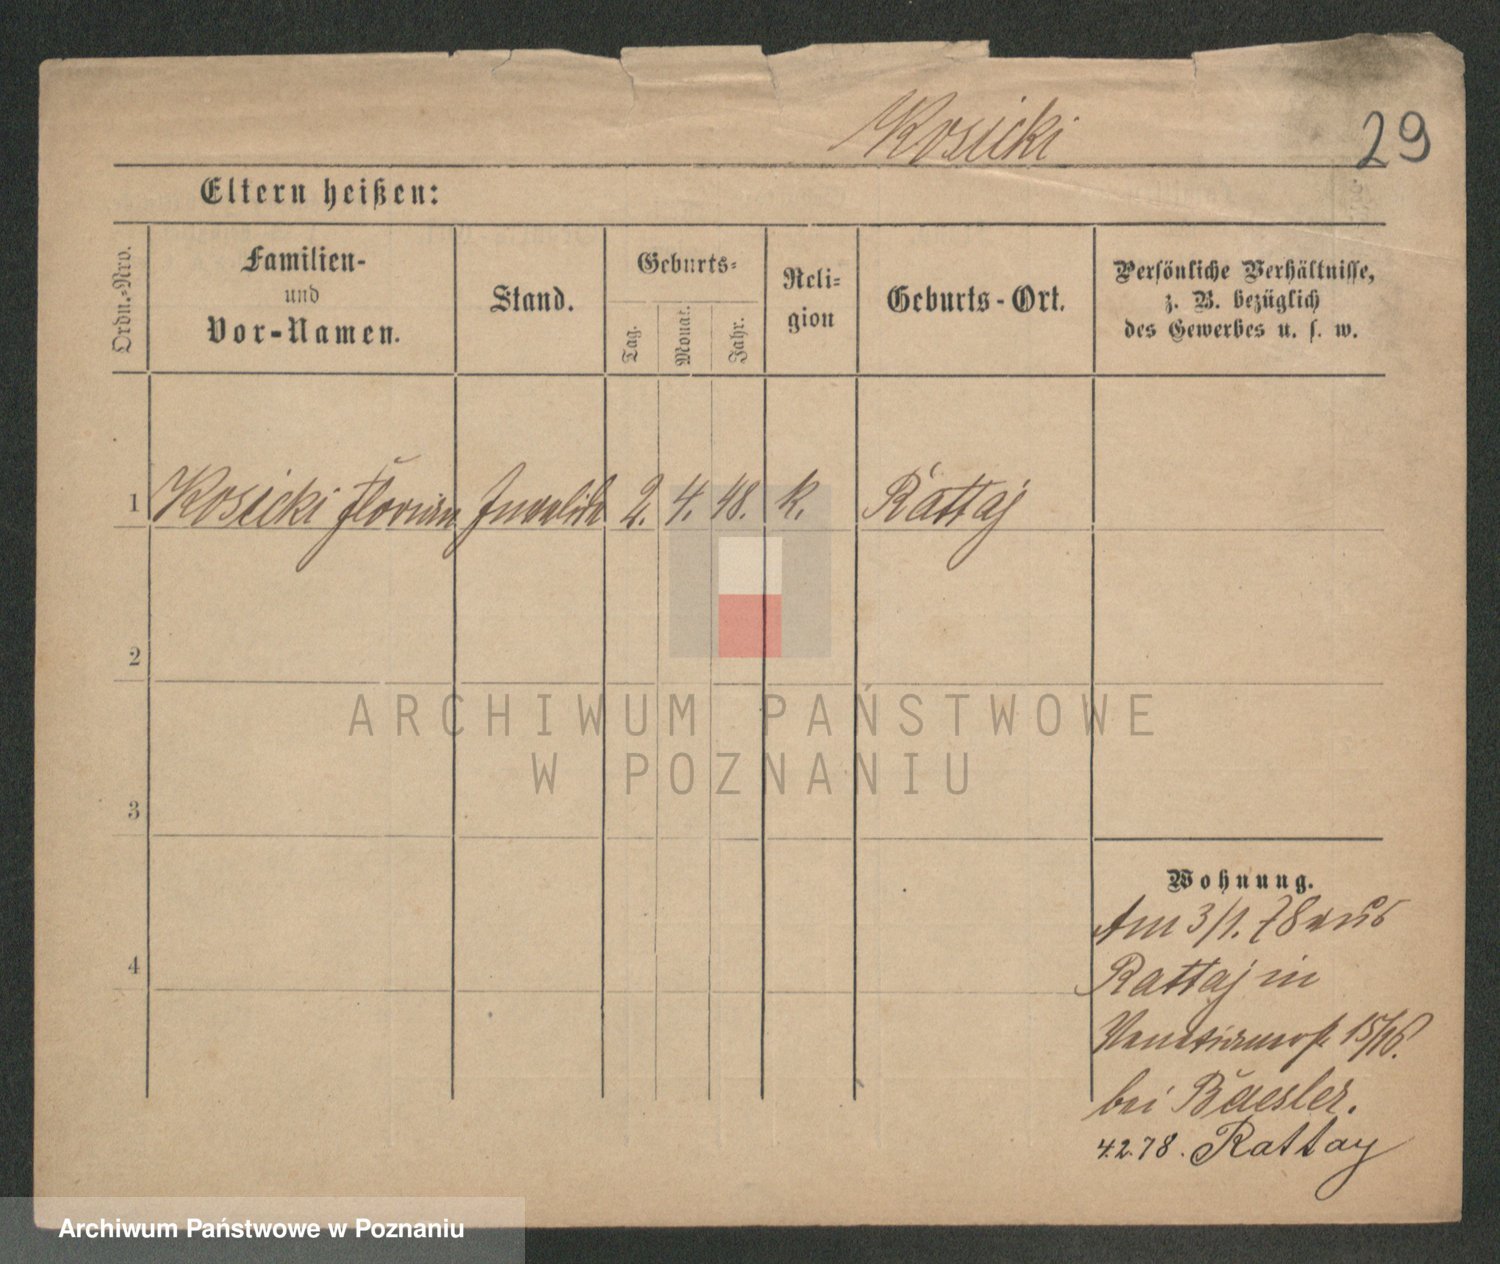 Kosicki
29
Eltern heißen:
Ordn.-Nro.
Familien-
und
Vor-Namen.
Stand.
Geburts-
Tag.
Monat.
Jahr.
Reli-
gion
Geburts-Ort.
Persönliche Verhältnisse,
z. B. bezüglich
des Gewerbes u. s. w.
1 Kosicki Florian Invalide 2. 4. 48. k. Rattaj
2
3
4
ARCHIWUM PAŃSTWOWE
W POZNANIU
Wohnung.
Am 3/1. 78 aus
Rattaj in
15/16.
bei Baesler.
4.2.78. Rattay
Archiwum Państwowe w Poznaniu